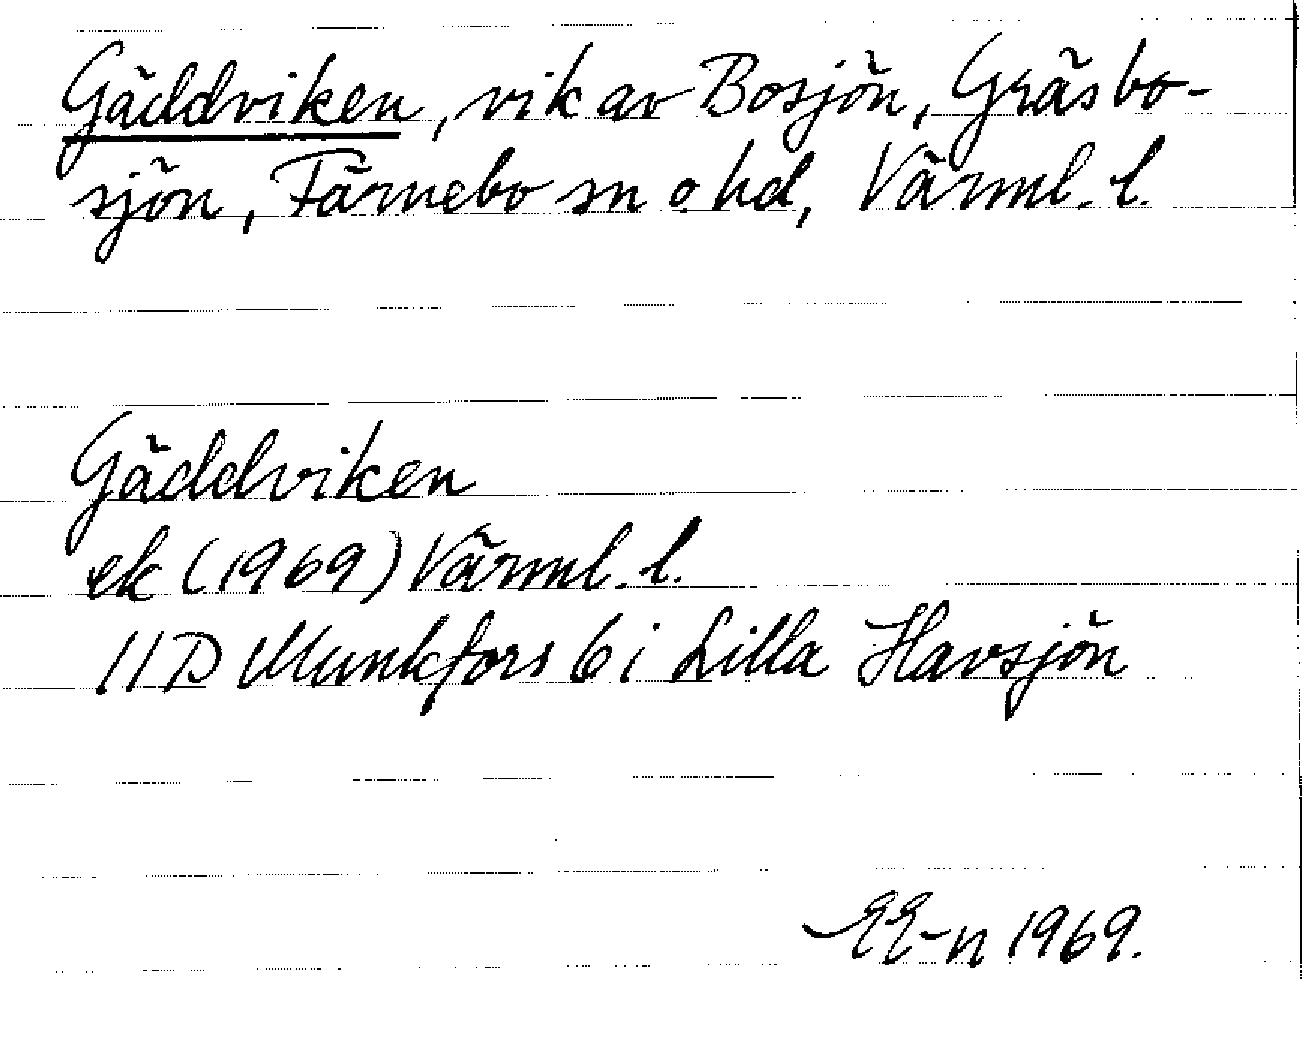 Gäddviken, vik av Bosjön, Gräsbo-
sjön, Färnebo sn o. hd, Värml. l.
Gäddviken
ek (1969) Värml. l.
11D Munkfors 6 i Lilla Havsjön
EE-n 1969.